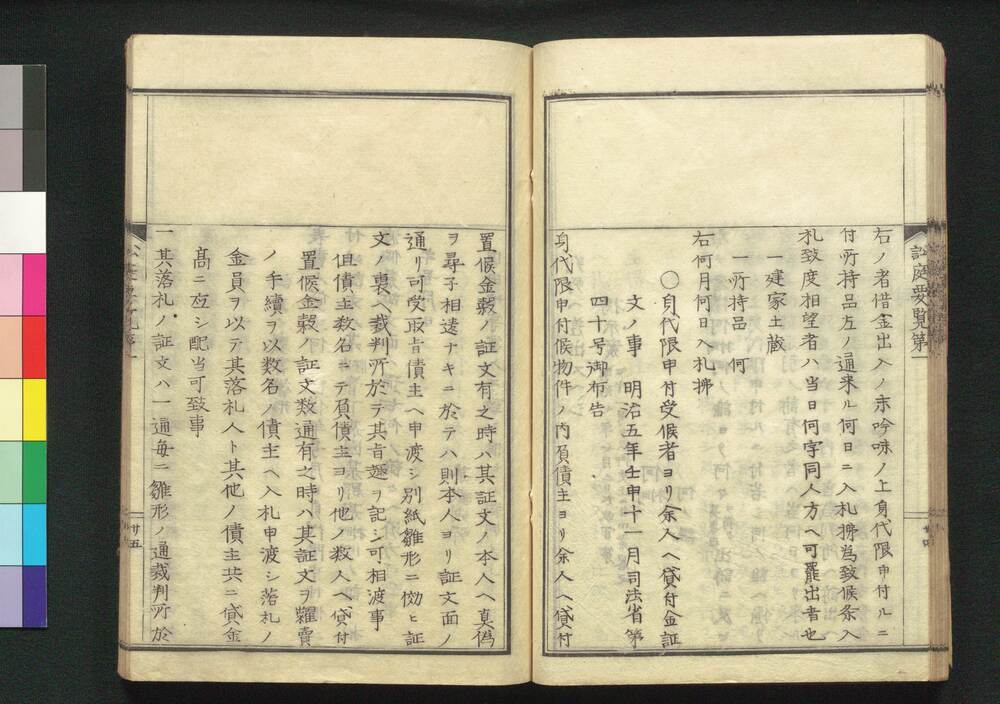 右ノ者借金出入ノ末吟味ノ上身代限申付ルニ
付所持品左ノ通来ル何日ニ入札拂為致候条入
札致度相望者ハ当日何字同人方ヘ可罷出者也
一建家土蔵
一所持品　何
右何月何日入札拂
○身代限申付受候者ヨリ余人ヘ貸付金証
文ノ事　明治五年壬申十一月司法省第
四十号御布告
身代限申付候物件ノ内負債主ヨリ余人ヘ貸付
訟庭要覧第一
廿四
置候金穀ノ証文有之時ハ其証文ノ本人ヘ真偽
ヲ尋子相違ナキニ於テハ則本人ヨリ証文面ノ
通リ可受取旨債主ヘ申渡シ別紙雛形ニ傚ヒ証
文ノ裏ヘ裁判所於テ其旨趣ヲ記シ可相渡事
但債主数名ニテ負債主ヨリ他ノ数人ヘ貸付
置候金穀ノ証文数通有之時ハ其証文ヲ糶賣
ノ手續ヲ以数名ノ債主ヘ入札申渡シ落札ノ
金員ヲ以テ其落札人ト其他ノ債主共ニ貸金
高ニ応シ配当可致事
一其落札ノ証文ハ一通毎ニ雛形ノ通裁判所於
廿五